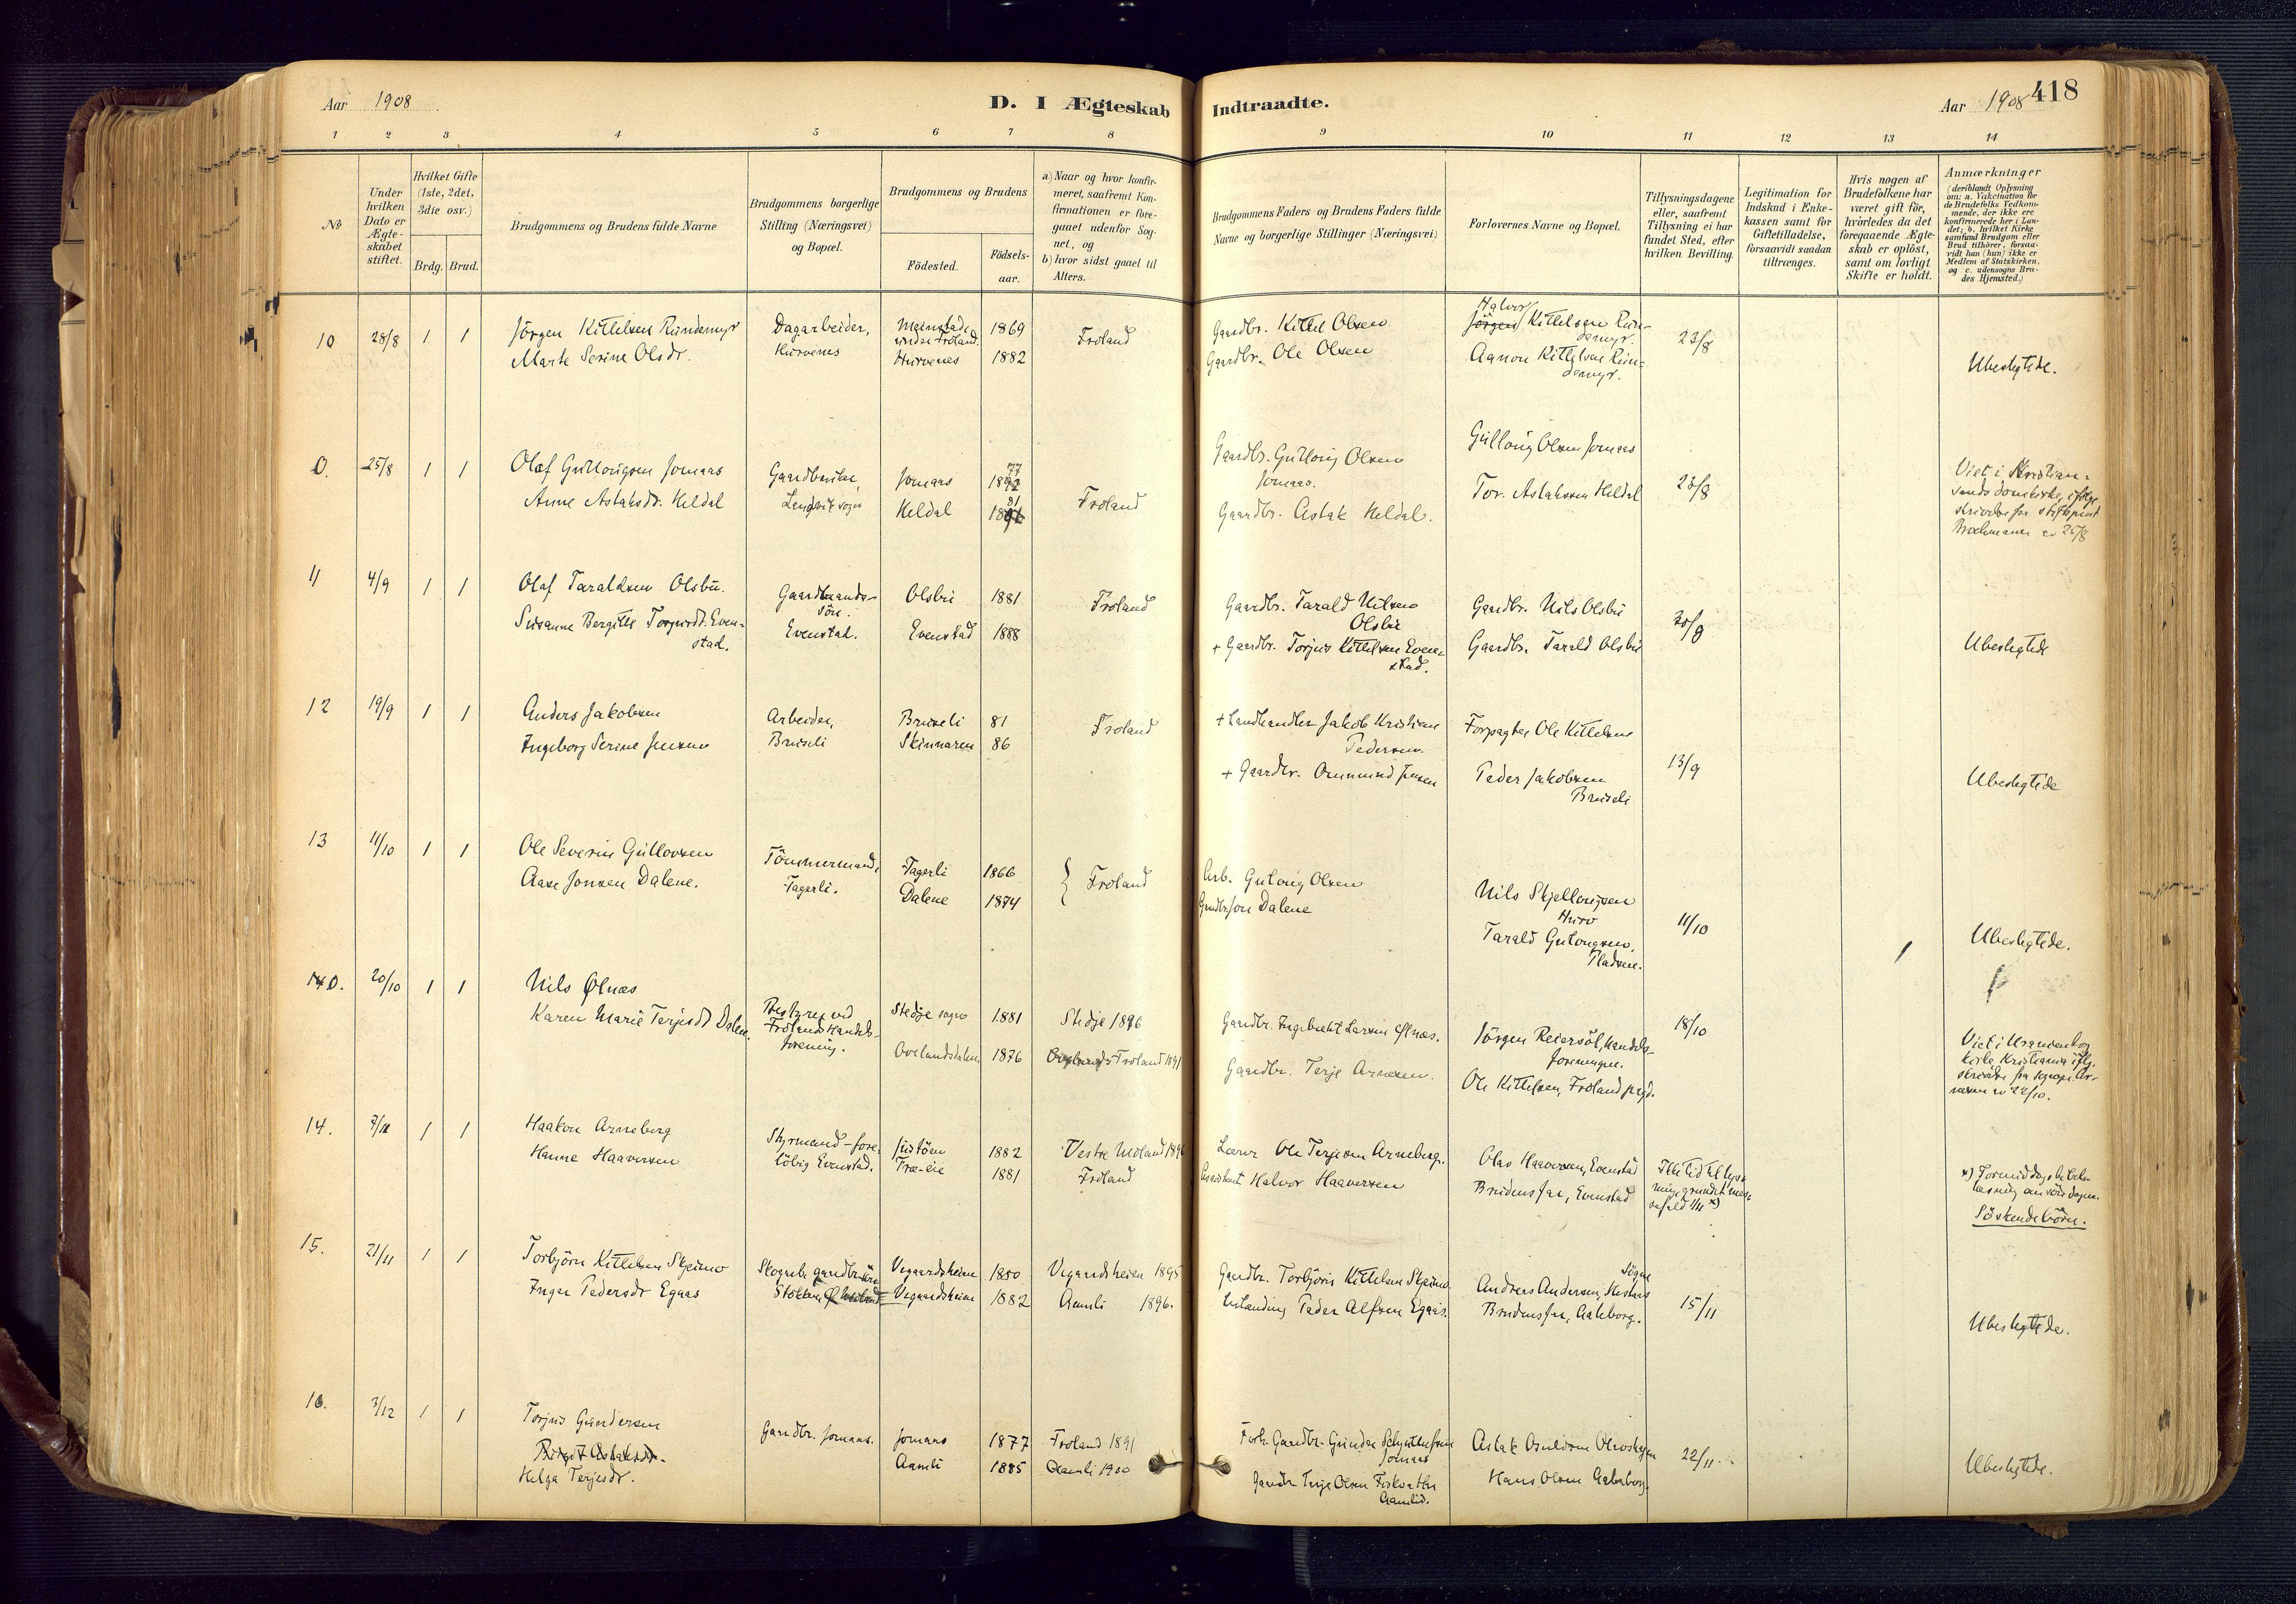 Aar 1908
D. I Ægteskab Indtraadte.
Aar 1908
418
1 2 3 4 5 6 7 8 9 10 11 12 13 14
№
Under hvilken Dato er Ægteskabet stiftet.
Hvilket Gifte (1ste, 2det, 3die osv.)
Brdg. Brud.
Brudgommens og Brudens fulde Navne
Brudgommens borgerlige Stilling (Næringsvei) og Bopæl.
Brudgommens og Brudens
Fødested.
Fødselsaar.
a) Naar og hvor konfirmeret, saafremt Konfirmationen er foregaaet udenfor Sognet, og
b) hvor sidst gaaet til Alters.
Brudgommens Faders og Brudens Faders fulde Navne og borgerlige Stillinger (Næringsvei)
Forlovernes Navne og Bopæl.
Tillysningsdagene eller, saafremt Tillysning ei har fundet Sted, efter hvilken Bevilling.
Legitimation for Indskud i Enkekassen samt for Giftetilladelse, forsaavidt saadan tiltrænges.
Hvis nogen af Brudefolkene har været gift før, hvorledes da det foregaaende Ægteskab er opløst, samt om lovligt Skifte er holdt.
Anmærkninger
(deriblandt Oplysning om: a. Vakcination for de Brudefolks Vedkommende, der ikke ere konfirmerede her i Landet; b. hvilket Kirkesamfund Brudgom eller Brud tilhører, forsaavidt han (hun) ikke er Medlem af Statskirken, og c. udensogns Brudes Hjemsted.)
10 28/8 1 1
Jörgen Kittelsen Rundemyr
Marte Serine Olsdr.
Dagarbeider,
Hurvenes
under Froland.
Hurvenes
1869
1882
Froland
Gaardbr. Kittel Olsen
Gaardbr. Ole Olsen
Halvor
Jörgen Kittelsen Rundemyr.
Aanon Kittelsen Rundemyr.
23/8
Ubeslegtede.
0. 25/8 1 1
Olaf Gullougsen Jomaas
Anne Aslaksdr. Heldal
Gaardbruker,
Jomaas
Heldal
77
81
Froland
Gaardbr. Gulloug Olsen
Jomaas.
Gaardbr. Aslak Heldal.
Gulloug Olsen Jomaas
Tor. Aslaksen Heldal
23/8
Viet i Kristiansands domkirke, ifølge
skrivelse fra stiftsprost
av 25/8
11 4/9 1 1
Olaf Taraldsen Olsbu.
Susanne Bergitte Torjusdt. Evenstad.
Gaardmandssön.
Evenstad.
Olsbu
Evenstad
1881
1888
Froland
Gaardbr. Tarald Nilsen
Olsbu
+ Gaardbr. Torjus Kittelsen Evenstad.
Gaardbr. Nils Olsbu
Gaardbr. Tarald Olsbu
30/8
Ubeslegtede
12 19/9 1 1
Anders Jakobsen
Ingeborg Serine Jensen
Arbeider,
Bruseli
Bruseli
Skinnaren
81
86
Froland
+ Landhandler Jakob Kristian
Pedersen
+ Gaardbr. Ommund Jensen
Forpagter Ole Kittelsen
Peder Jakobsen
Bruseli
13/9
Ubeslegtede
13 11/10 1 1
Ole Severin Gullovsen
Aase Jonsen Dalene.
Tömmermand,
Fagerli.
Fagerli
Dalene
1866
1874
Froland
Arb. Guloug Olsen
Gaardbr. Jon Dalene
Nils Skjellougsen
Hurv
Tarald Gulougsen,
Pladsen.
11/10
Ubeslegtede.
140. 20/10 1 1
Nils Ølnæs
Karen Marie Terjesdt Dalen.
Bestyrer ved
Frolands Handelsforening.
Stedje sogn
1881
1876
Stedje 1896
Froland 1891
Gaardbr. Ingebrekt Larsen Ølnæs.
Gaardbr. Terje Arnesen.
Jörgen Reiersöl, Handelsforeningen.
Ole Kittelsen, Froland prgd.
18/10
Viet i Uranienborg
kirke Kristiania ifølg.
skrivelse fra
av 22/10.
14. 1 1
Haakon Arneberg
Hanne Haaversen
Styrmand - forelöbig Evenstad.
Træ-eie
1882
1881
Vestre Moland 1896
Froland
Lærer Ole Terjesen Arneberg.
Assistent Halvor Haaversen
Olav Haaversen, Evenstad
Brudens far, Evenstad
Ikke tid til lysning grundet
x) Formiddag
Söskendebörn.
15. 21/11 1 1
Torbjörn Kittelsen Skjeimo
Inger Pedersdr Egaas
Stokken
Vegaardsheien
Vegaardsheien
1880
1882
Vegaardsheien 1895
Aamli 1896.
Gaardbr. Torbjörn Kittelsen Skjeimo
Peder Alfsen Egaas.
Andreas Andersen,
Brudens far,
15/11
Ubeslegtede.
16. 3/12 1 1
Torjus Gundersen
Birgit Aslaksdr.
Helga Terjesdr.
Gaardbr. Jomaas.
Jomaas
Aamli
1877
1885
Froland 1891
Aamli 1900
Forh. Gaardbr. Gunder
Jomaas
Gaardbr Terje Olsen Fiskvatn
Aamlid.
Aslak
Hans Olsen
22/11
Ubeslegtede.